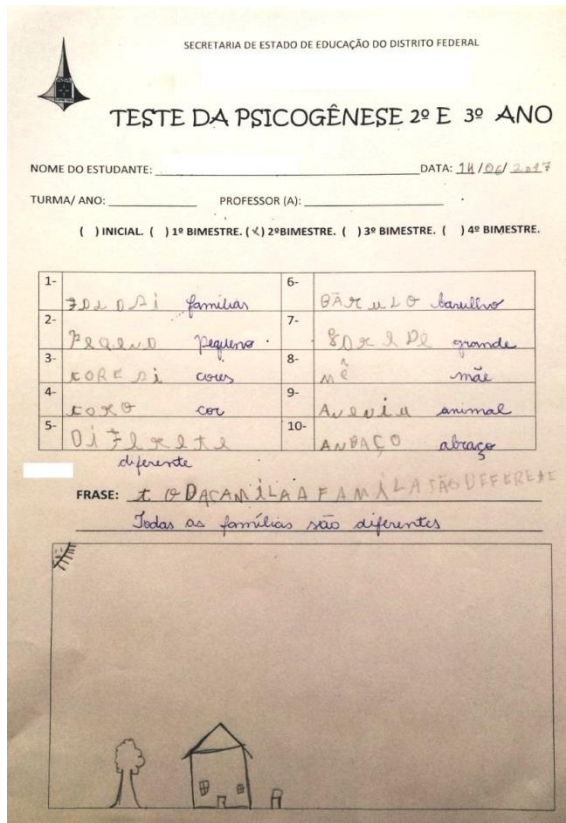 SECRETARIA DE ESTADO DE EDUCAÇÃO DO DISTRITO FEDERAL
TESTE DA PSICOGÊNESE 2º E 3º ANO
NOME DO ESTUDANTE: DATA: 14/06/2017
TURMA/ ANO: PROFESSOR (A):
( ) INICIAL. ( ) 1º BIMESTRE. (X) 2ºBIMESTRE. ( ) 3º BIMESTRE. ( ) 4º BIMESTRE.
1- famílias
6- BÃRULO barulho
2- Pequno pequeno
7- grande
3- KORE cores
8- mê mãe
4- KORO cor
9- animal
5- diferente
10- ANBAÇO abraço
FRASE: TODACAMILAA FAMÍLA SÃO DEFERETE
Todas as famílias são diferentes